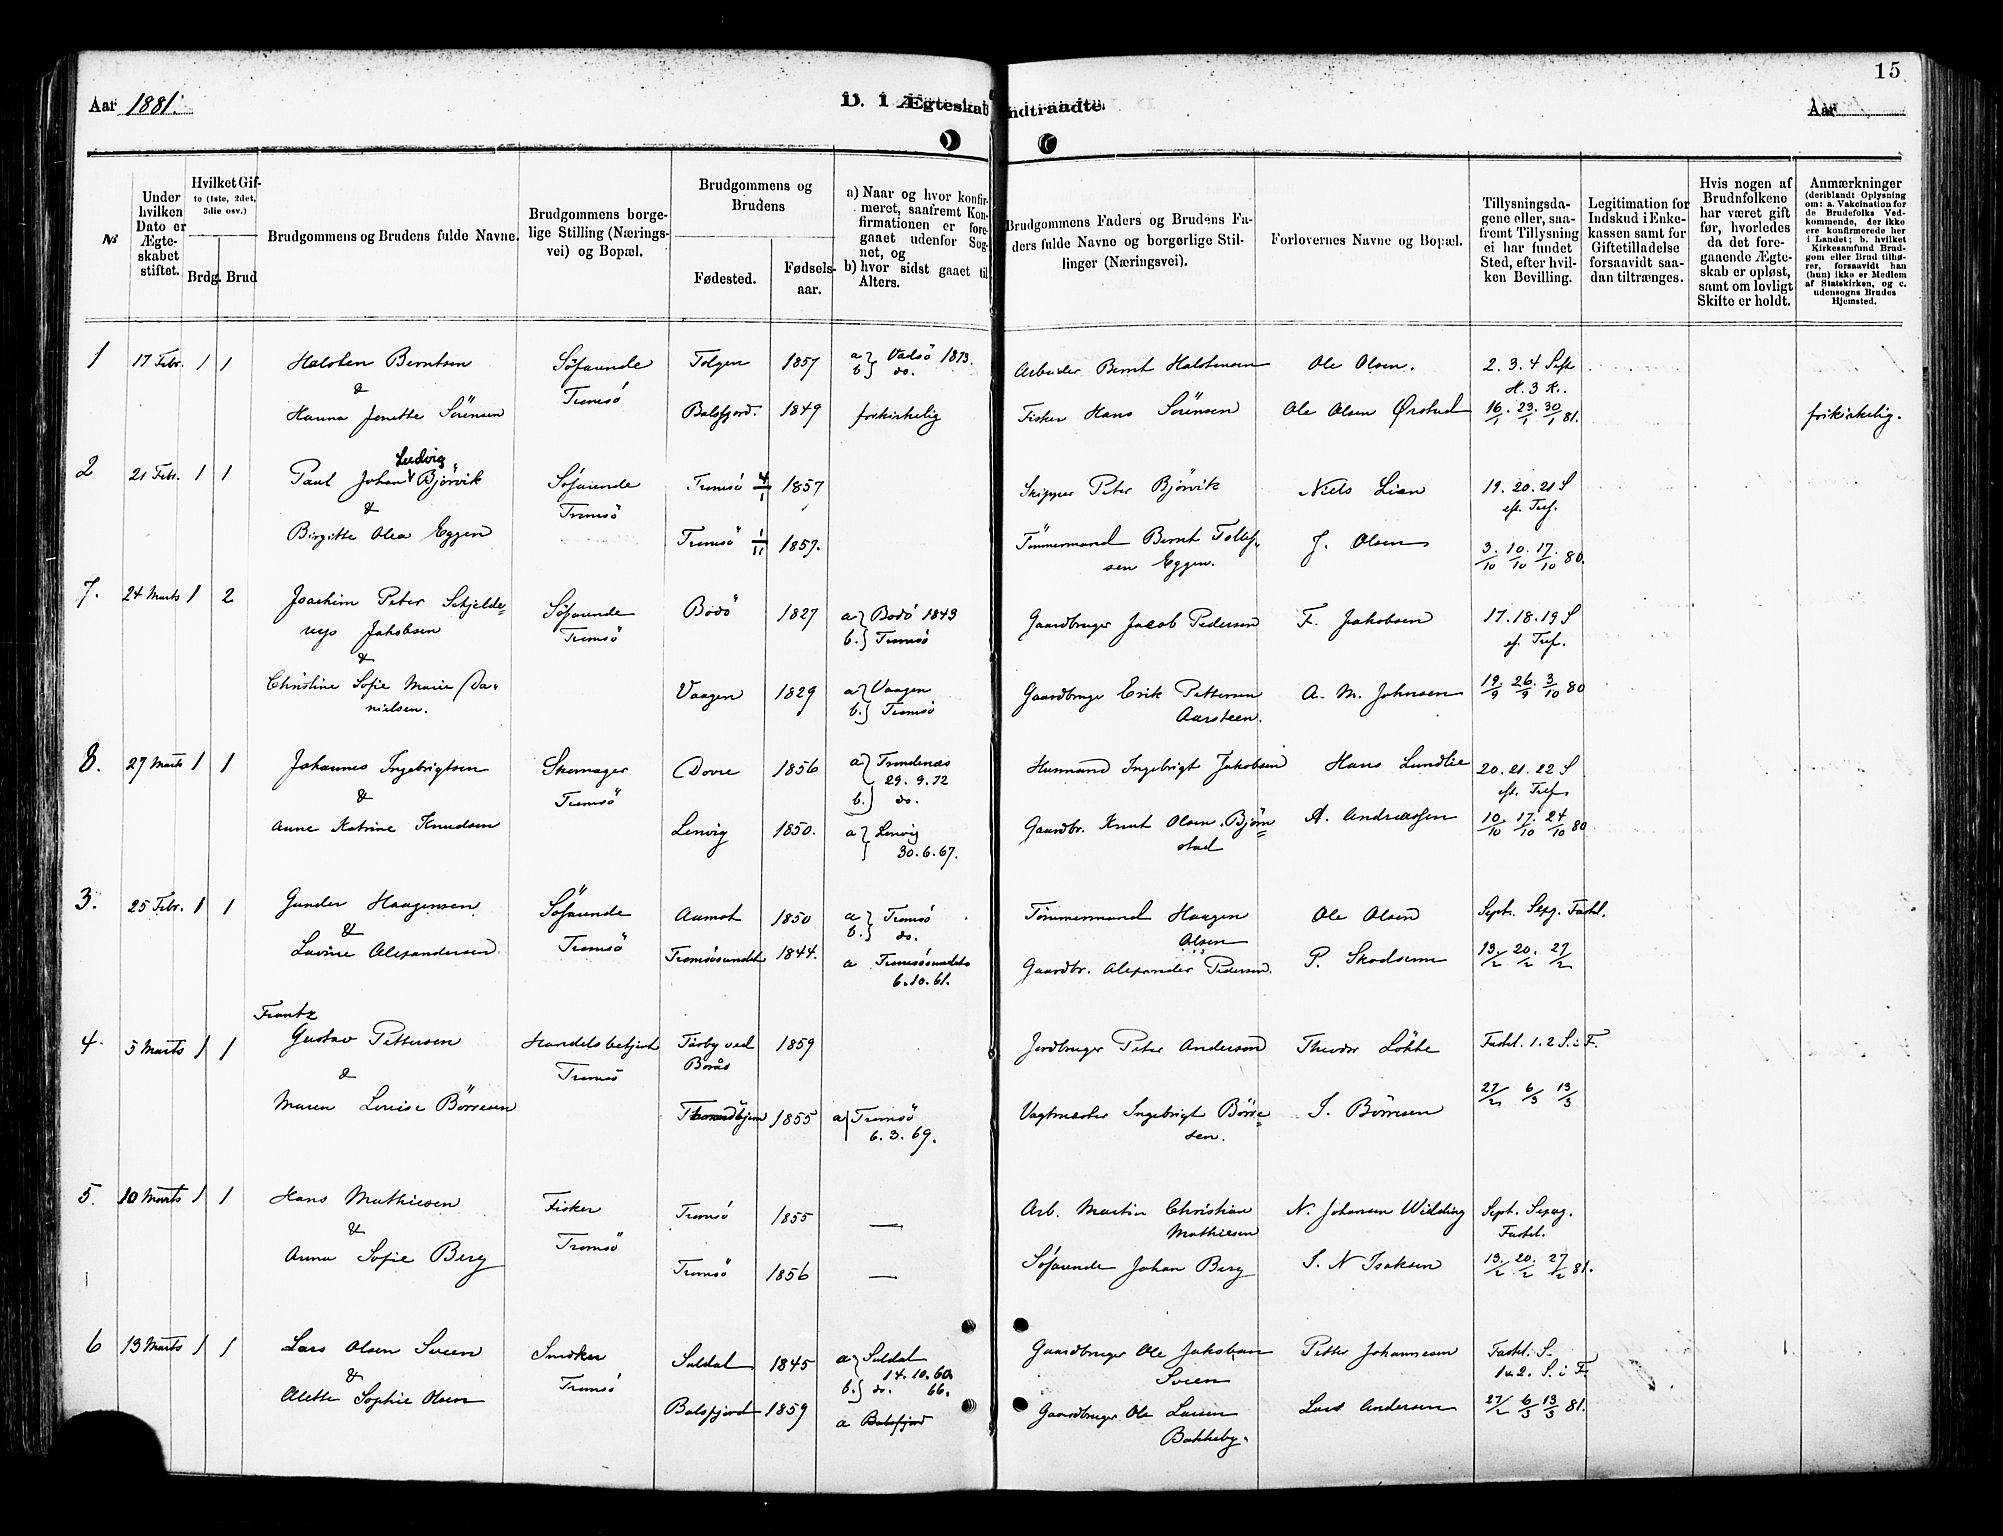 15
Aar 1881.
D. I Ægteskab Indtraadte.
Aar
No
Under hvilken Dato er Ægteskabet stiftet.
Hvilket Gifto (1ste, 2det, 3die osv.)
Brdg. Brud
Brudgommens og Brudens fulde Navne.
Brudgommens borgelige Stilling (Næringsvei) og Bopæl.
Brudgommens og Brudens
Fødested.
Fødselsaar.
a) Naar og hvor konfirmeret, saafremt Konfirmationen er foregaaet udenfor Sognet, og
b) hvor sidst gaaet til Alters.
Brudgommens Faders og Brudens Faders fulde Navne og borgerlige Stillinger (Næringsvei).
Forlovernes Navne og Bopæl.
Tillysningsdagene eller, saafremt Tillysning ei har fundet Sted, efter hvilken Bevilling.
Legitimation for Indskud i Enkekassen samt for Giftetilladelse forsaavidt saadan tiltrænges.
Hvis nogen af Brudnfolkene har været gift før, hvorledes da det foregaaende Ægteskab er opløst, samt om lovligt Skifte er holdt.
Anmærkninger
(deriblandt Oplysning om: a. Vakcination for de Brudefolks Vedkommende, der ikke ere konfirmerede her i Landet; b. hvilket Kirkesamfund Brudgom eller Brud tilhører, forsaavidt han (hun) ikke er Medlem af Statskirken, og c. udensogns Brudes Hjemsted.
1 17 Febr. 1 1 Halsten Berntsen Søfarende Tolgen 1857 a} Vadsö 1873. Arbeider Bernt Halstensen Ole Olsen. 2. 3. 4 S.
& Tromsö b} do. H. 3 K.
Hanna Jenette Sörensen Balsfjord. 1849 frikirkelig Fisker Hans Sörensen Ole Olsen 16/1 23/1 30/1 81. frikirkelig.
2 21 Febr. 1 1 Paul Johan Ludvig Bjørvik Søfarende Tromsö 4/1 1857 Skipper Peter Bjørvik Niels Lian 19. 20. 21 S
& Tromsö ef. Tref.
Birgitte Olea Eggen Tromsö 1/11 1857. Tömmermand Bernt Tollefsen Eggen. J. Olsen 3/10 10/10 17/10 80.
7. 24 Marts 1 2 Joachim Peter Schjelderup Jakobsen Søfarende Bodö 1827 a} Bodö 1843 Gaardbruger Jacob Pedersen F. Jakobsen 17. 18. 19 S
& Tromsö b.} Tromsö ef. Tref.
Christine Sofie Marie Danielsen. Vaagen 1829 a} Vaagen Gaardbruge Erik Pettersen Aarsteen. A. M. Johnsen 19/9 26/9 3/10 80
b.} Tromsö
8. 27 Marts 1 1 Johannes Ingebrigtsen Skomager Dovre 1856 a} Trondenæs 29. 9. 72 Husmand Ingebrigt Jakobsen Hans Lundlie 20. 21. 22 S
& Tromsö b.} do. eft. Tref.
Anne Katrine Knudsen Lenvig 1850. a} Lenvig 30. 6. 67. Gaardbr. Knut Olsen Bjørnstad A. Andreassen 10/10 17/10 24/10 80
3. 25 Febr. 1 1 Gunder Haagensen Søfarende Aamot 1850 a} Tromsö Tömmermand Haagen Olsen Ole Olsen Sept. Sexg. Fastel.
& Tromsö b.} do.
Lavine Alexandersen Tromsösundet 1844. a Tromsösundets 6. 10. 61. Gaardbr. Alexander Pedersen. P. 13/2 20/2 27/2
4. 5 Marts 1 1 Frantz Gustav Pettersen Handelsbetjent Tarby ved Borås 1859 Jordbruger Peter Anderson Theodor Lökke Fastel. 1. 2 S. i F.
& Tromsö
Maren Louise Börresen Trondhjem 1855 a} Tromsö 6. 3. 69. Vagtmester Ingebrigt Börresen. S. Börresen 27/2 6/3 13/3
5. 10 Marts 1 1 Hans Mathiesen Fisker Tromsö 1855 — Arb. Martin Christian Mathiesen N. Johansen Widding Sept. Sexag. Fastel.
& Tromsö
Anna Sofie Berg Tromsö 1856 — Søfarende Johan Berg S. N Isaksen 13/2 20/2 27/2 81.
6 13 Marts 1 1 Lars Olsen Sveen Snedker Suldal 1845 a} Suldal 14. 10. 60. Gaardbruger Ole Jakobsen Sveen Petter Johannesen Fastel. S. 1 & 2. S. i F.
& Tromsö b.} do. 66.
Alette Sophie Olsen Balsfjord 1859 a Balsfjord Gaardbruger Ole Larsen Bakkeby. Lars Andersen 27/2 6/3 13/3 81.